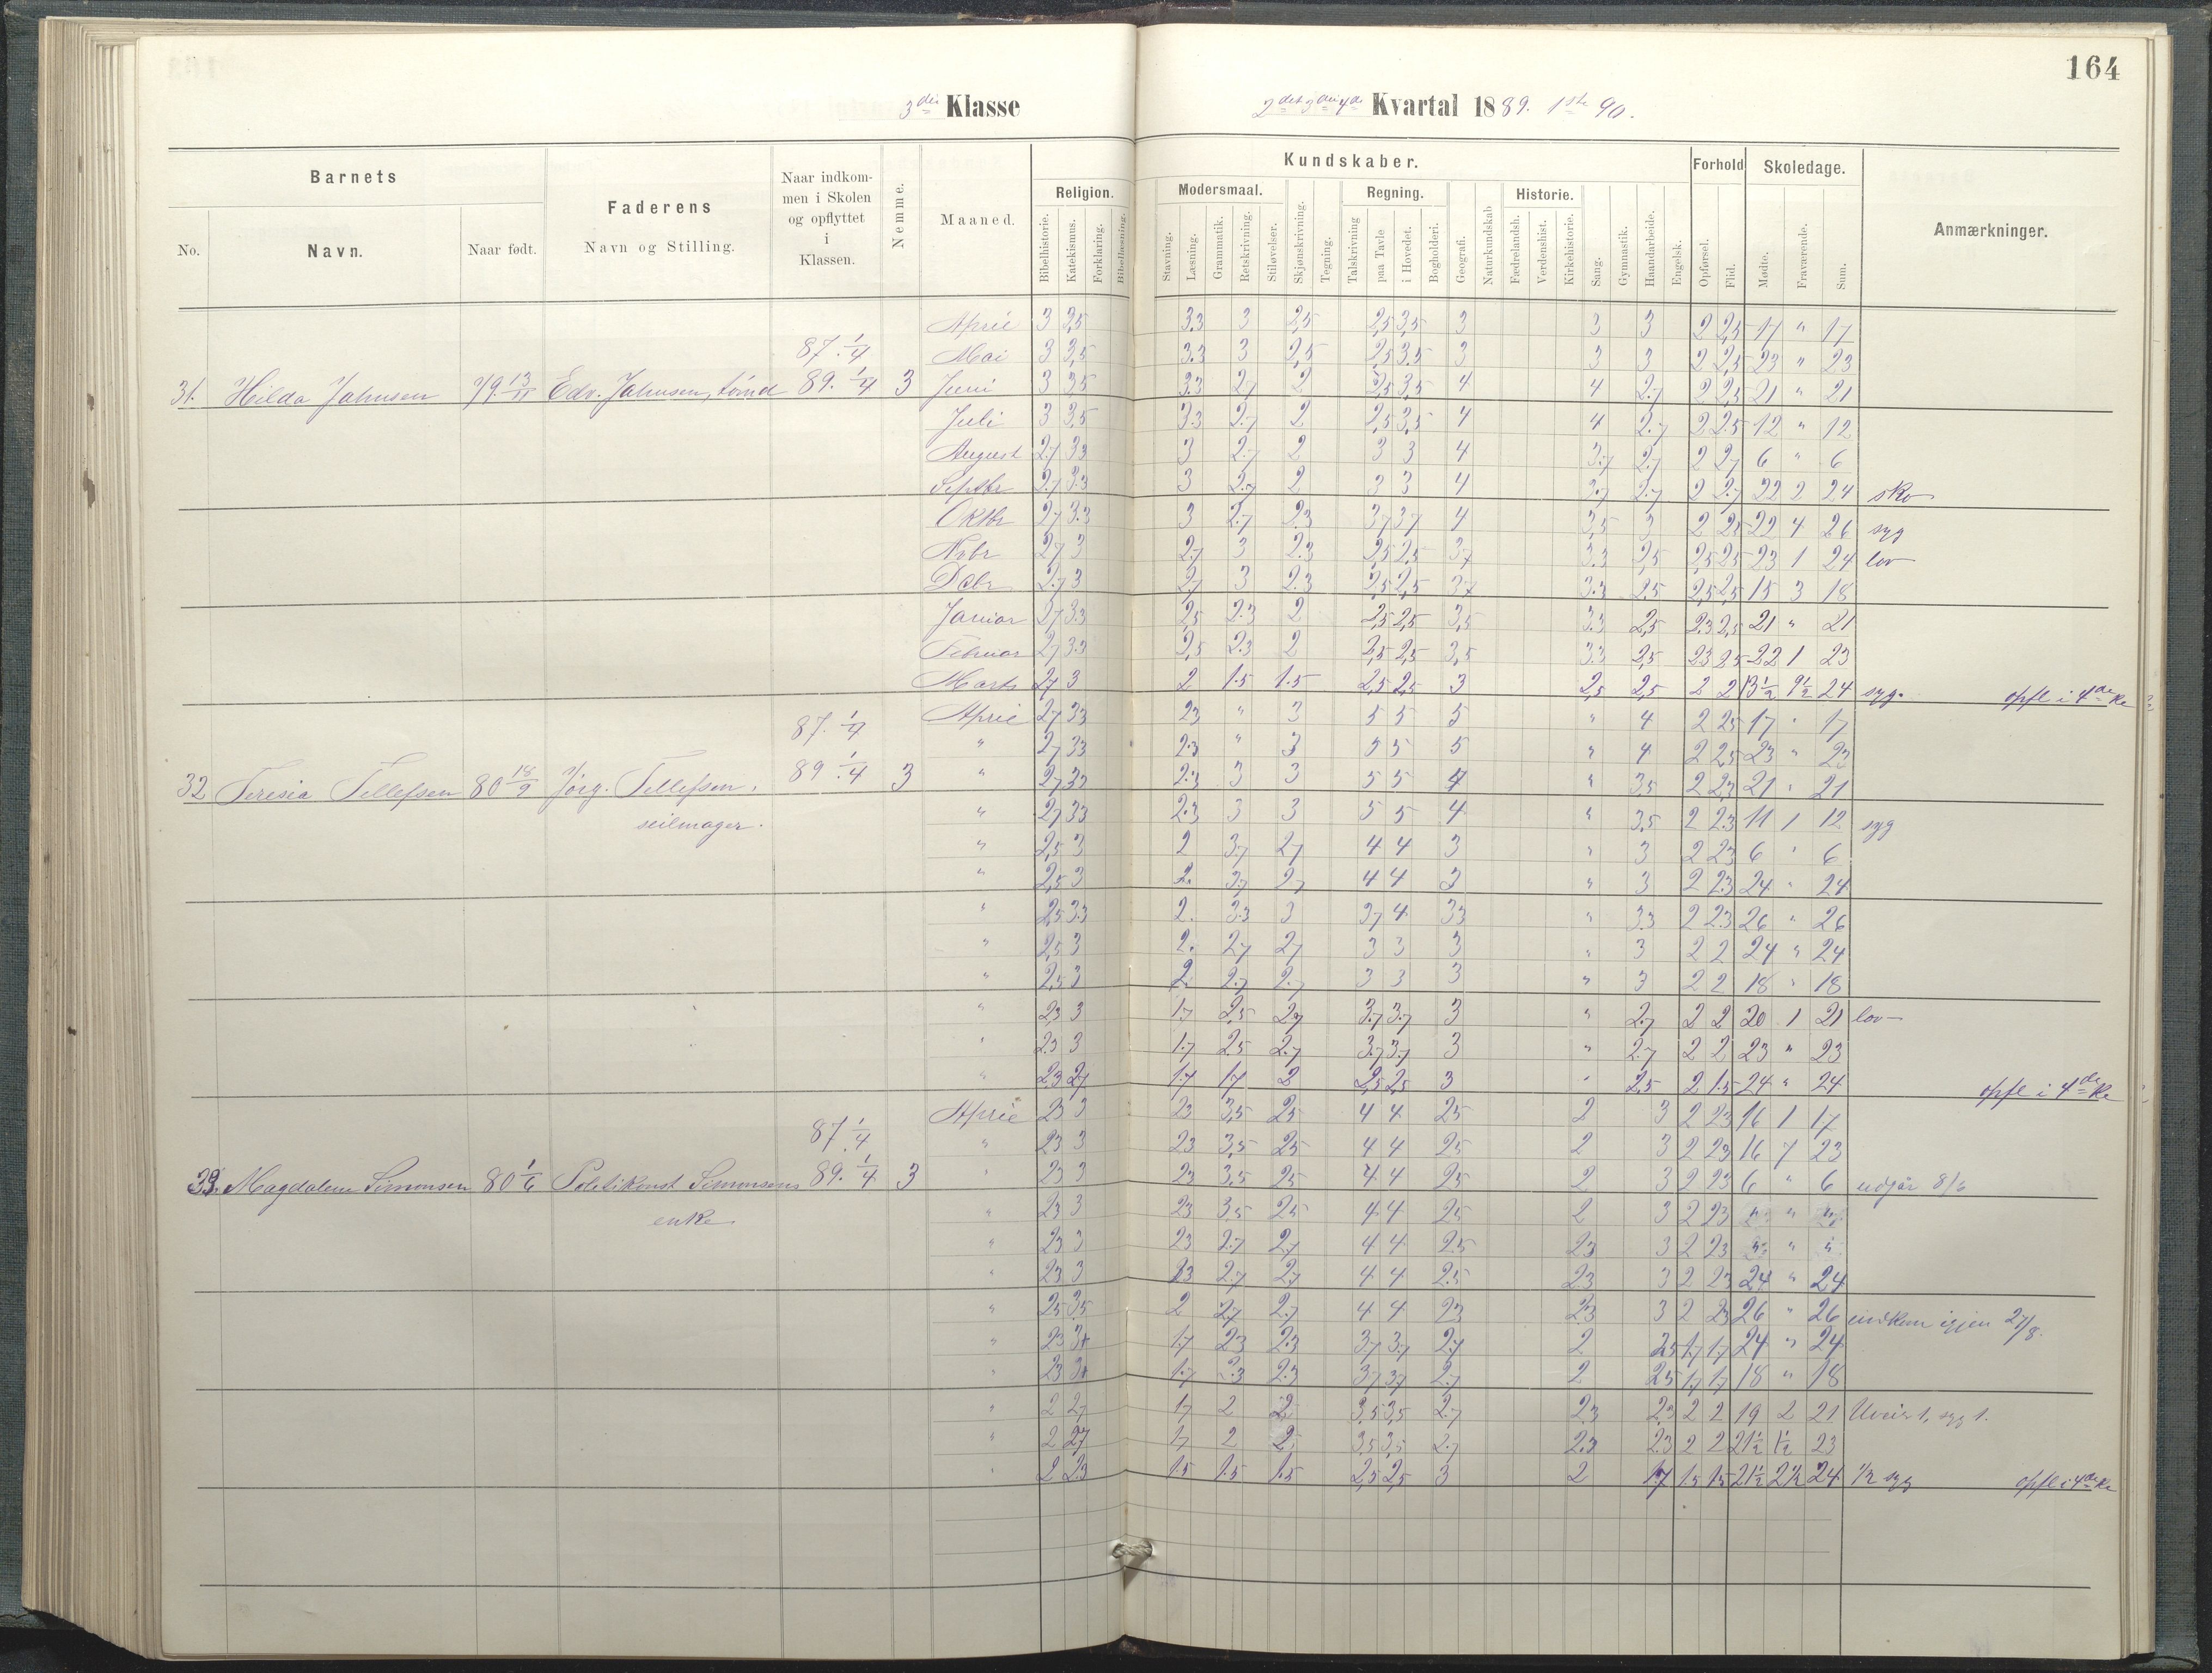 164
3die Klasse 2det 3die 4de Kvartal 1889. 1ste 90.
Barnets
No.
Navn.
Naar født.
Faderens
Navn og Stilling.
Naar indkom-
men i Skolen
og opflyttet
i
Klassen.
Nemme.
Maaned.
Kundskaber.
Religion.
Bibelhistorie.
Katekismus.
Forklaring.
Bibellæsning.
Modersmaal.
Stavning.
Læsning.
Grammatik.
Retskrivning.
Stiløvelser.
Skjønskrivning.
Tegning.
Regning.
Talskrivning
paa Tavle
i Hovedet.
Bogholderi.
Geografi.
Naturkundskab
Historie.
Fædrelandsh.
Verdenshist.
Kirkehistorie.
Sang.
Gymnastik.
Haandarbeide.
Engelsk.
Forhold
Opførsel.
Flid.
Skoledage.
Mødte.
Fraværende.
Sum.
Anmærkninger.
April 3 3,5 3.3 3 2,5 2,5 3,5 3 3 3 2 2,5 17 " 17
87. 1/4 Mai 3 3,5 3.3 3 2,5 2,5 3.5 3 3 3 2 2,5 23 " 23
31. Hilda Jahnsen 79 13/11 Edv. Jahnsen, tømd 89. 1/4 3 Juni 3 3,5 3.3 2,7 2 2,5 3,5 4 4 2.7 2 2,5 21 " 21
Juli 3 3,5 3.3 2.7 2 2,5 3,5 4 4 2.7 2 2.5 12 " 12
August 2.7 3.3 3 2.7 2 3 3 4 3.7 2.7 2 2.7 6 " 6
Septbr 2.7 3.3 3 2.7 2 3 3 4 3.7 2.7 2 2.7 22 2 24 sko
Oktbr 2.7 3.3 3 2.7 2.3 3.7 3.7 4 3,5 3 2 2.5 22 4 26 syg
Nvbr 2.7 3 2.7 3 2.3 2,5 2,5 3.7 3.3 2,5 2,5 2,5 23 1 24 lov
Dcbr 2.7 3 2.7 3 2.3 2,5 2,5 3.7 3.3 2.5 2,5 2,5 15 3 18
Januar 2.7 3.3 2,5 2.3 2 2,5 2,5 3,5 3.3 2,5 2.3 2,5 21 " 21
Februar 2.7 3.3 2,5 2.3 2 2,5 2,5 3,5 3.3 2,5 2.3 2.5 22 1 23
Marts 2.7 3 2 1.5 1.5 2,5 2,5 3 2,5 2,5 2 2 13 1/2 9 1/2 24 syg. opfl i 4de Kl
87. 1/4 April 2.7 33 23 " 3 5 5 5 " 4 2 25 17 " 17
" 27 33 2.3 " 3 5 5 5 " 4 2 2,5 23 " 23
32 Teresia Tellefsen 80 18/9 Jörg. Tellefsen, 89 1/4 3 " 2,7 33 2.3 3 3 5 5 4 " 3,5 2 2,3 21 " 21
seilmager. " 27 33 2.3 3 3 5 5 4 " 3,5 2 2.3 11 1 12 syg
" 2,5 3 2 3.7 2.7 4 4 3 " 3 2 23 6 " 6
" 2,5 3 2. 3.7 2.7 4 4 3 " 3 2 2.3 24 " 24
" 2,5 3.3 2. 3.3 3 3.7 4 33 " 3.3 2 2.3 26 " 26
" 2,5 3 2. 2.7 2.7 3 3 3 " 3 2 2 24 " 24
" 2,5 3 2. 2.7 2.7 3 3 3 " 3 2 2 18 " 18
" 23 3 1.7 2,5 2.7 3.7 3.7 3 " 2.7 2 2 20 1 21 lov
" 2.3 3 1.7 2.5 2.7 3.7 3.7 3 " 2.7 2 2 23 " 23
" 2.3 2.7 1.7 1.7 2 2,5 2,5 3 " 2,5 2 1.5 24 " 24 opfl i 4de Kl
April 23 3 23 3,5 25 4 4 25 2 3 2 23 16 1 17
87 1/4 " 23 3 23 3,5 25 4 4 25 2 3 2 23 16 7 23
33. Magdalene Simonsen 80 1/6 Politikonst Simonsens 89. 1/4 3 " 23 3 23 3,5 25 4 4 25 2 3 2 23 6 " 6 udgår 8/6
enke " 23 3 23 3,5 25 4 4 25 2 3 2 23 " " "
" 23 3 23 2.7 2.7 4 4 2.5 23 3 2 23 " " "
" 23 3 23 2.7 2.7 4 4 2.5 23 3 2 23 24 " 24
" 25 3,5 2 2.7 2.7 4 4 23 23 3 2 23 26 " 26 indkom igjen 27/8.
" 23 3+ 1.7 23 2.3 3.7 3.7 2.7 2 25 1.7 1.7 24 " 24
" 23 3+ 1.7 2.3 2.3 3.7 3.7 2.7 2 2.5 1.7 1.7 18 " 18
" 2 2.7 1.7 2 2 3,5 3,5 2.7 23 2.3 2 2 19 2 21 Uveir 1, syg 1.
" 2 2.7 1.7 2 2 3,5 3,5 2.7 2.3 2.3 2 2 21 1/2 1 1/2 23
" 2 2.3 1.5 1.5 1.5 2,5 2,5 3 2 1.7 1.5 1.5 21 1/2 2 1/2 24 1/2 syg opfl i 4de Kl